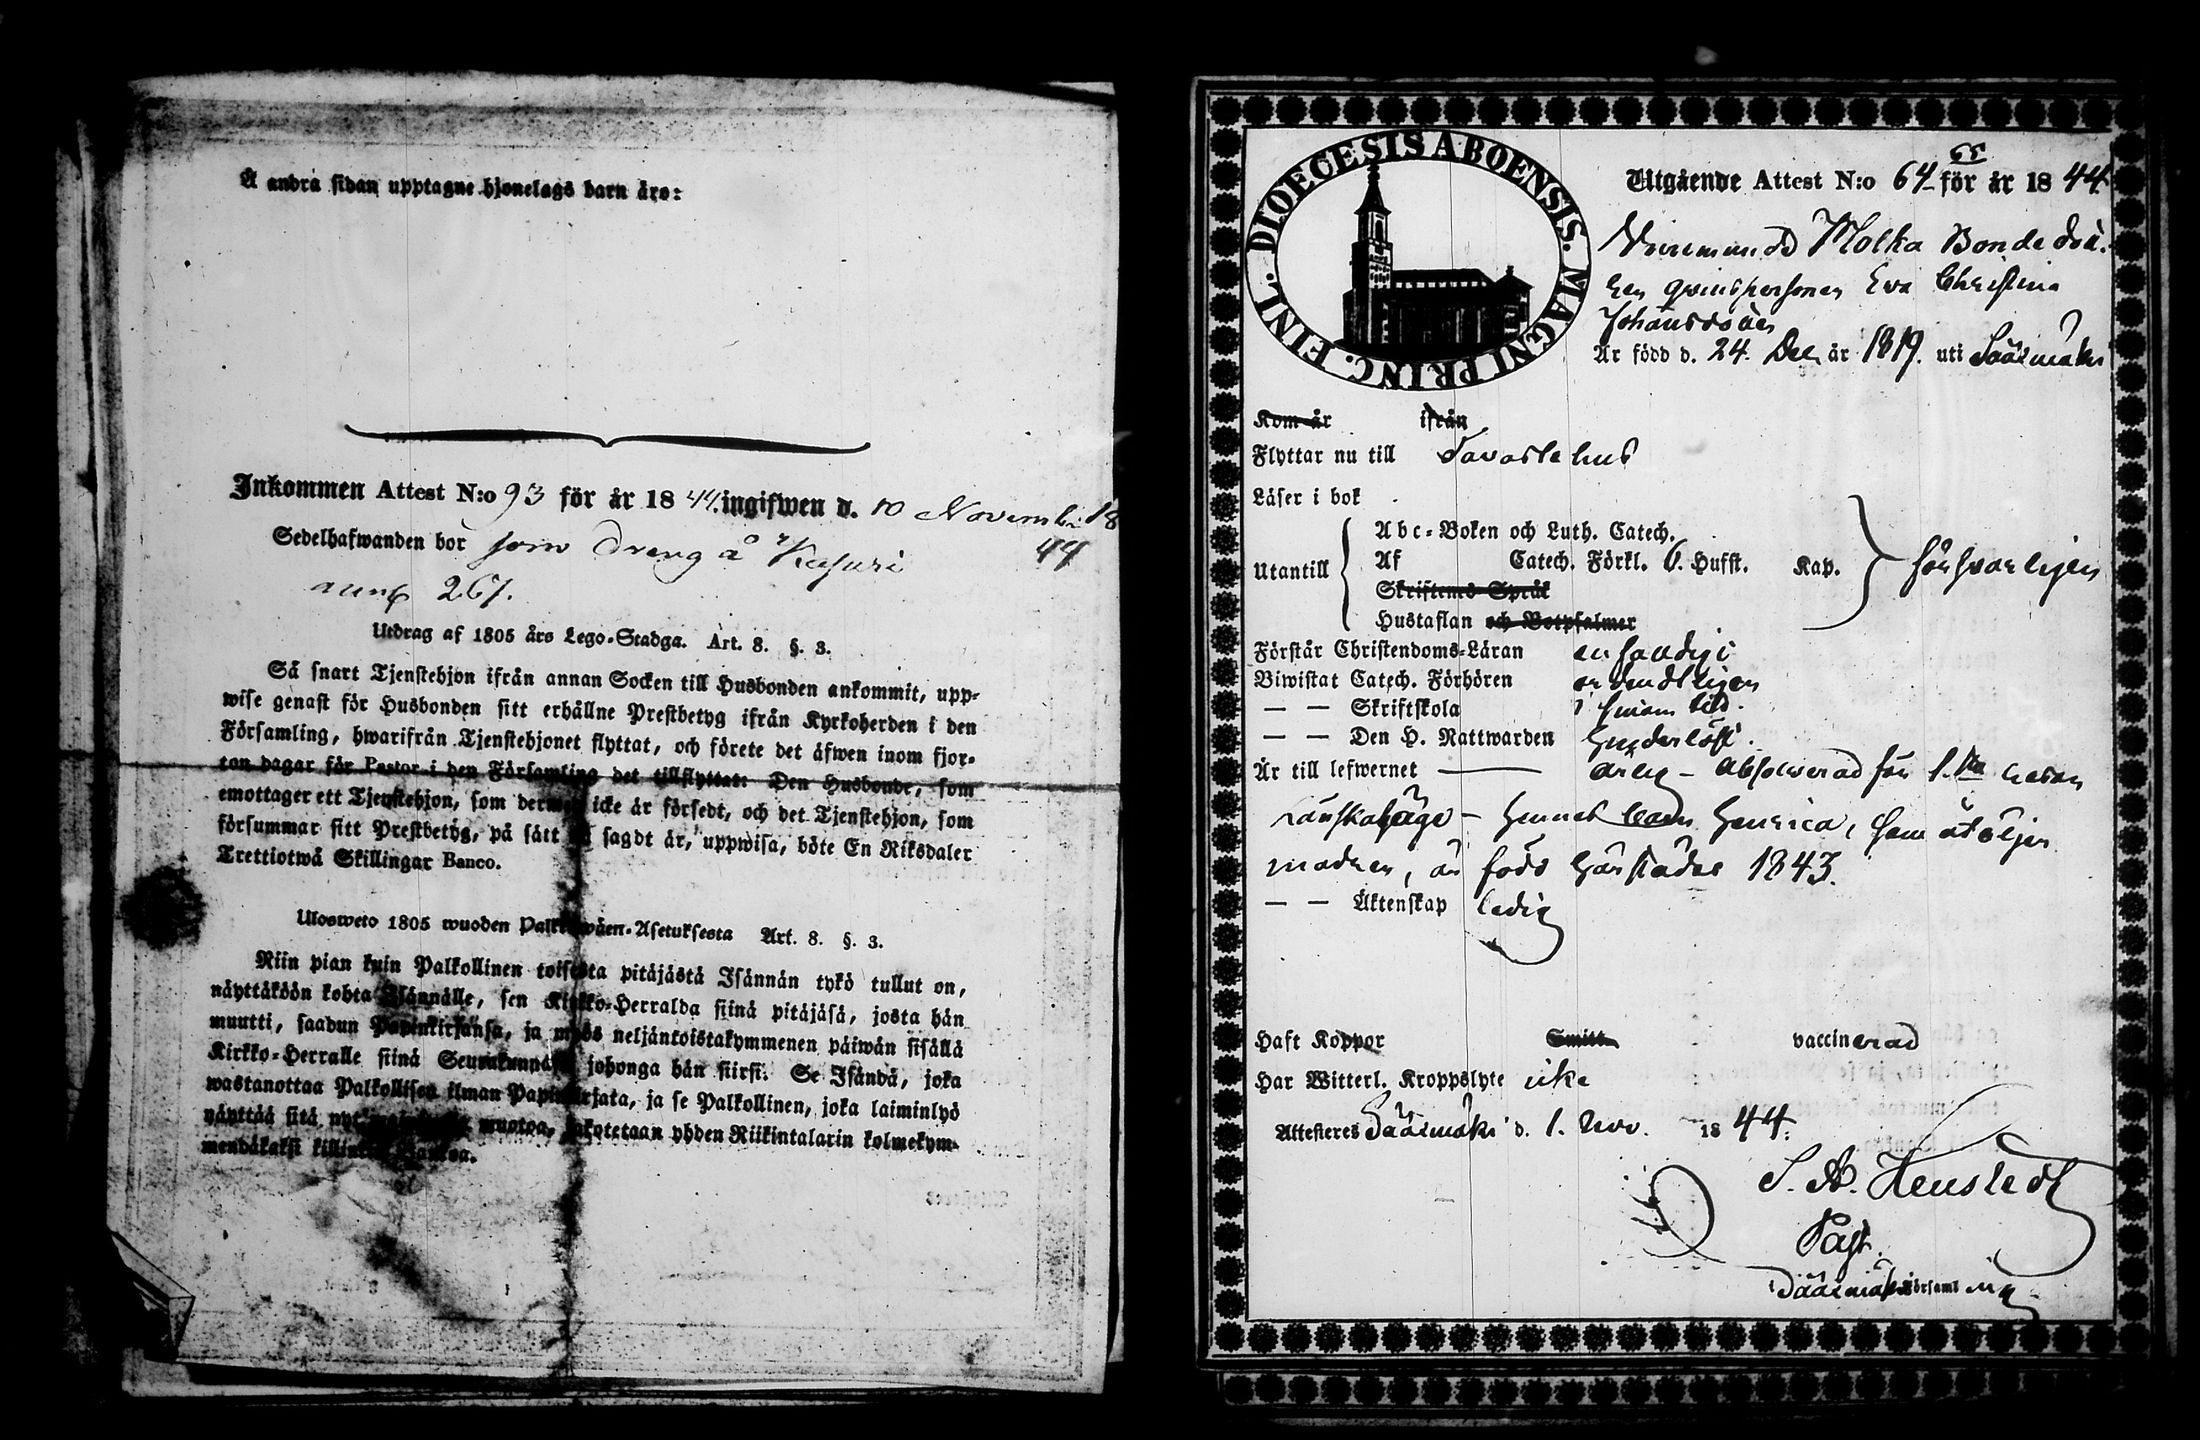 Å andra sidan upptagne hjonelags barn äro:
Inkommen Attest N:o 93 för år 1844. ingifwen d. 10 November 18
44
Sedelhafwanden bor som dreng å Kasuri
num 267.
Utdrag af 1805 års Lego-Stadga. Art. 8. §. 3.
Så snart Tjenstehjon ifrån annan Socken till Husbonden ankommit, upp-
wise genast för Husbonden sitt erhållne Prestbetyg ifrån Kyrkoherden i den
Församling, hwarifrån Tjenstehjonet flyttat, och förete det äfwen inom fjor-
ton dagar för Pastor i den Församling det tillflyttat: Den Husbonde, som
emottager ett Tjenstehjon, som dermed icke är försedt, och det Tjenstehjon, som
försummar sitt Prestbetyg, på sätt sagdt är, uppwisa, böte En Riksdaler
Trettiotwå Skillingar Banco.
Ulosweto 1805 wuoden Palkkawäen-Asetuksesta Art. 8. §. 3.
Niin pian kuin Palkollinen toisesta pitäjästä Isännän tykö tullut on,
näyttäköön kohta Isännälle, sen Kirkko-Herralda siinä pitäjäsä, josta hän
muutti, saadun Papinkirjansa, ja myös neljäntoistakymmenen päiwän sisällä
Kirkko-Herralle siinä Seurakunnasa johonga hän siirsi. Se Isändä, joka
wastanottaa Palkollisen ilman Papinkirjata, ja se Palkollinen, joka laiminlyö
näyttää sitä muotoa, sakotetaan yhden Riikintalarin kolmekym-
mendäkaksi killingiä Bankoa.
DIOECESIS ABOENSIS. MAGNI PRINC. FINL.
65
Utgående Attest N:o 64 för år 1844.
Molka Bonde dot.
qvinspersonen Eva Christina
Johansdotter
Är född d. 24. Dec. år 1819. uti Sääxmäki
Kom år ifrån
Flyttar nu till Tavastehus
Läser i bok
Utantill
Abc-Boken och Luth. Catech.
Af Catech. Förkl. 6. Hufst. Kap. försvarligen
Skriftenes Språk
Hustaflan och Botpsalmer
Förstår Christendoms-Läran enfaldigt
Biwistat Catech. Förhören ordentligen
— — Skriftskola i sinom tid.
— — Den H. Nattwarden
Är till lefwernet ärlig — absolverad för 1.sta
lönskaläge — hennes barn Henrica, som åtöljer
modren, är född härstädes 1843.
— — Äktenskap ledig
Haft Koppor Smitt vaccinerad
Har Witterl. Kroppslyte icke
Attesteres Sääxmäki d. 1. Nov. 1844.
Past.
i Sääxmäki Församling